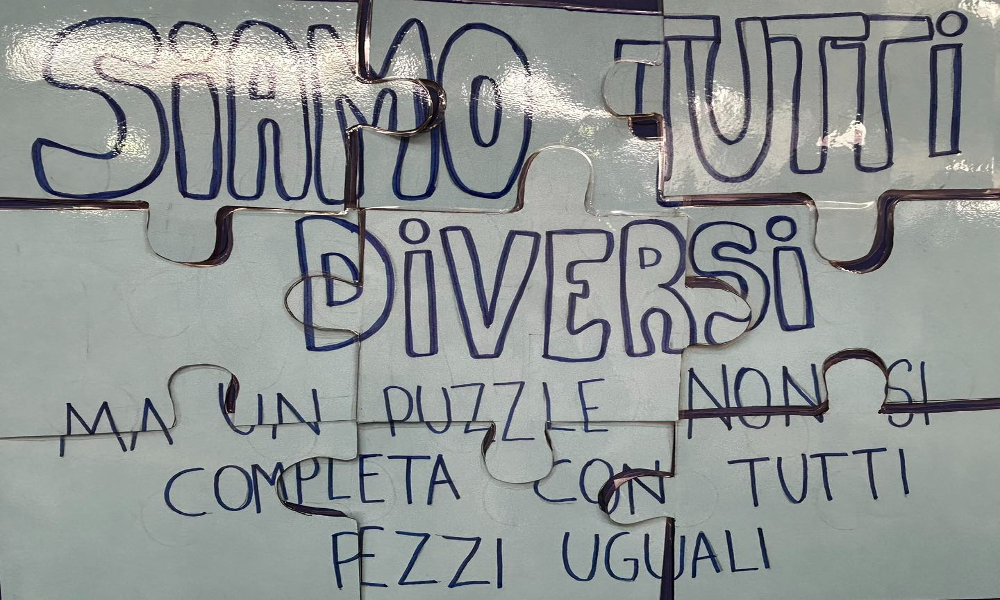 SiAMO TUTTi
DiVERSi
MA UN PUZZLE NON SI
COMPLETA CON TUTTI
PEZZI UGUALI